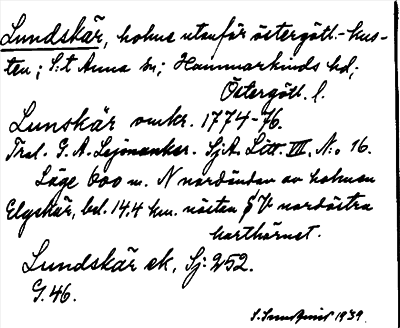 Lundskär, holme utanför östergötl.-kus-
ten; S:t Anna sn; Hammarkinds hd;
Östergötl. l.
Lunskär omkr. 1774-76.
Trol. G. A. Lejonanker. SjA. Litt. VII, N:o 16.
Läge 600 m. N nordändan av holmen
Elgskär, bel. 14.4 km. nästan V nordöstra
karthörnet.
Lundskär ek. Sj: 252.
G. 46.
1939.